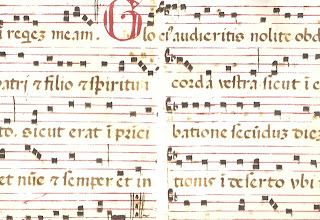 ı reqez meam. Glo
patri & filio & spiritui
to. sicut erat ı prıcı
et nūc & semper et in
es audieritis nolite obd
corda vestra sicut ı e
batione secūduz diez
tionis ı deserto vbi